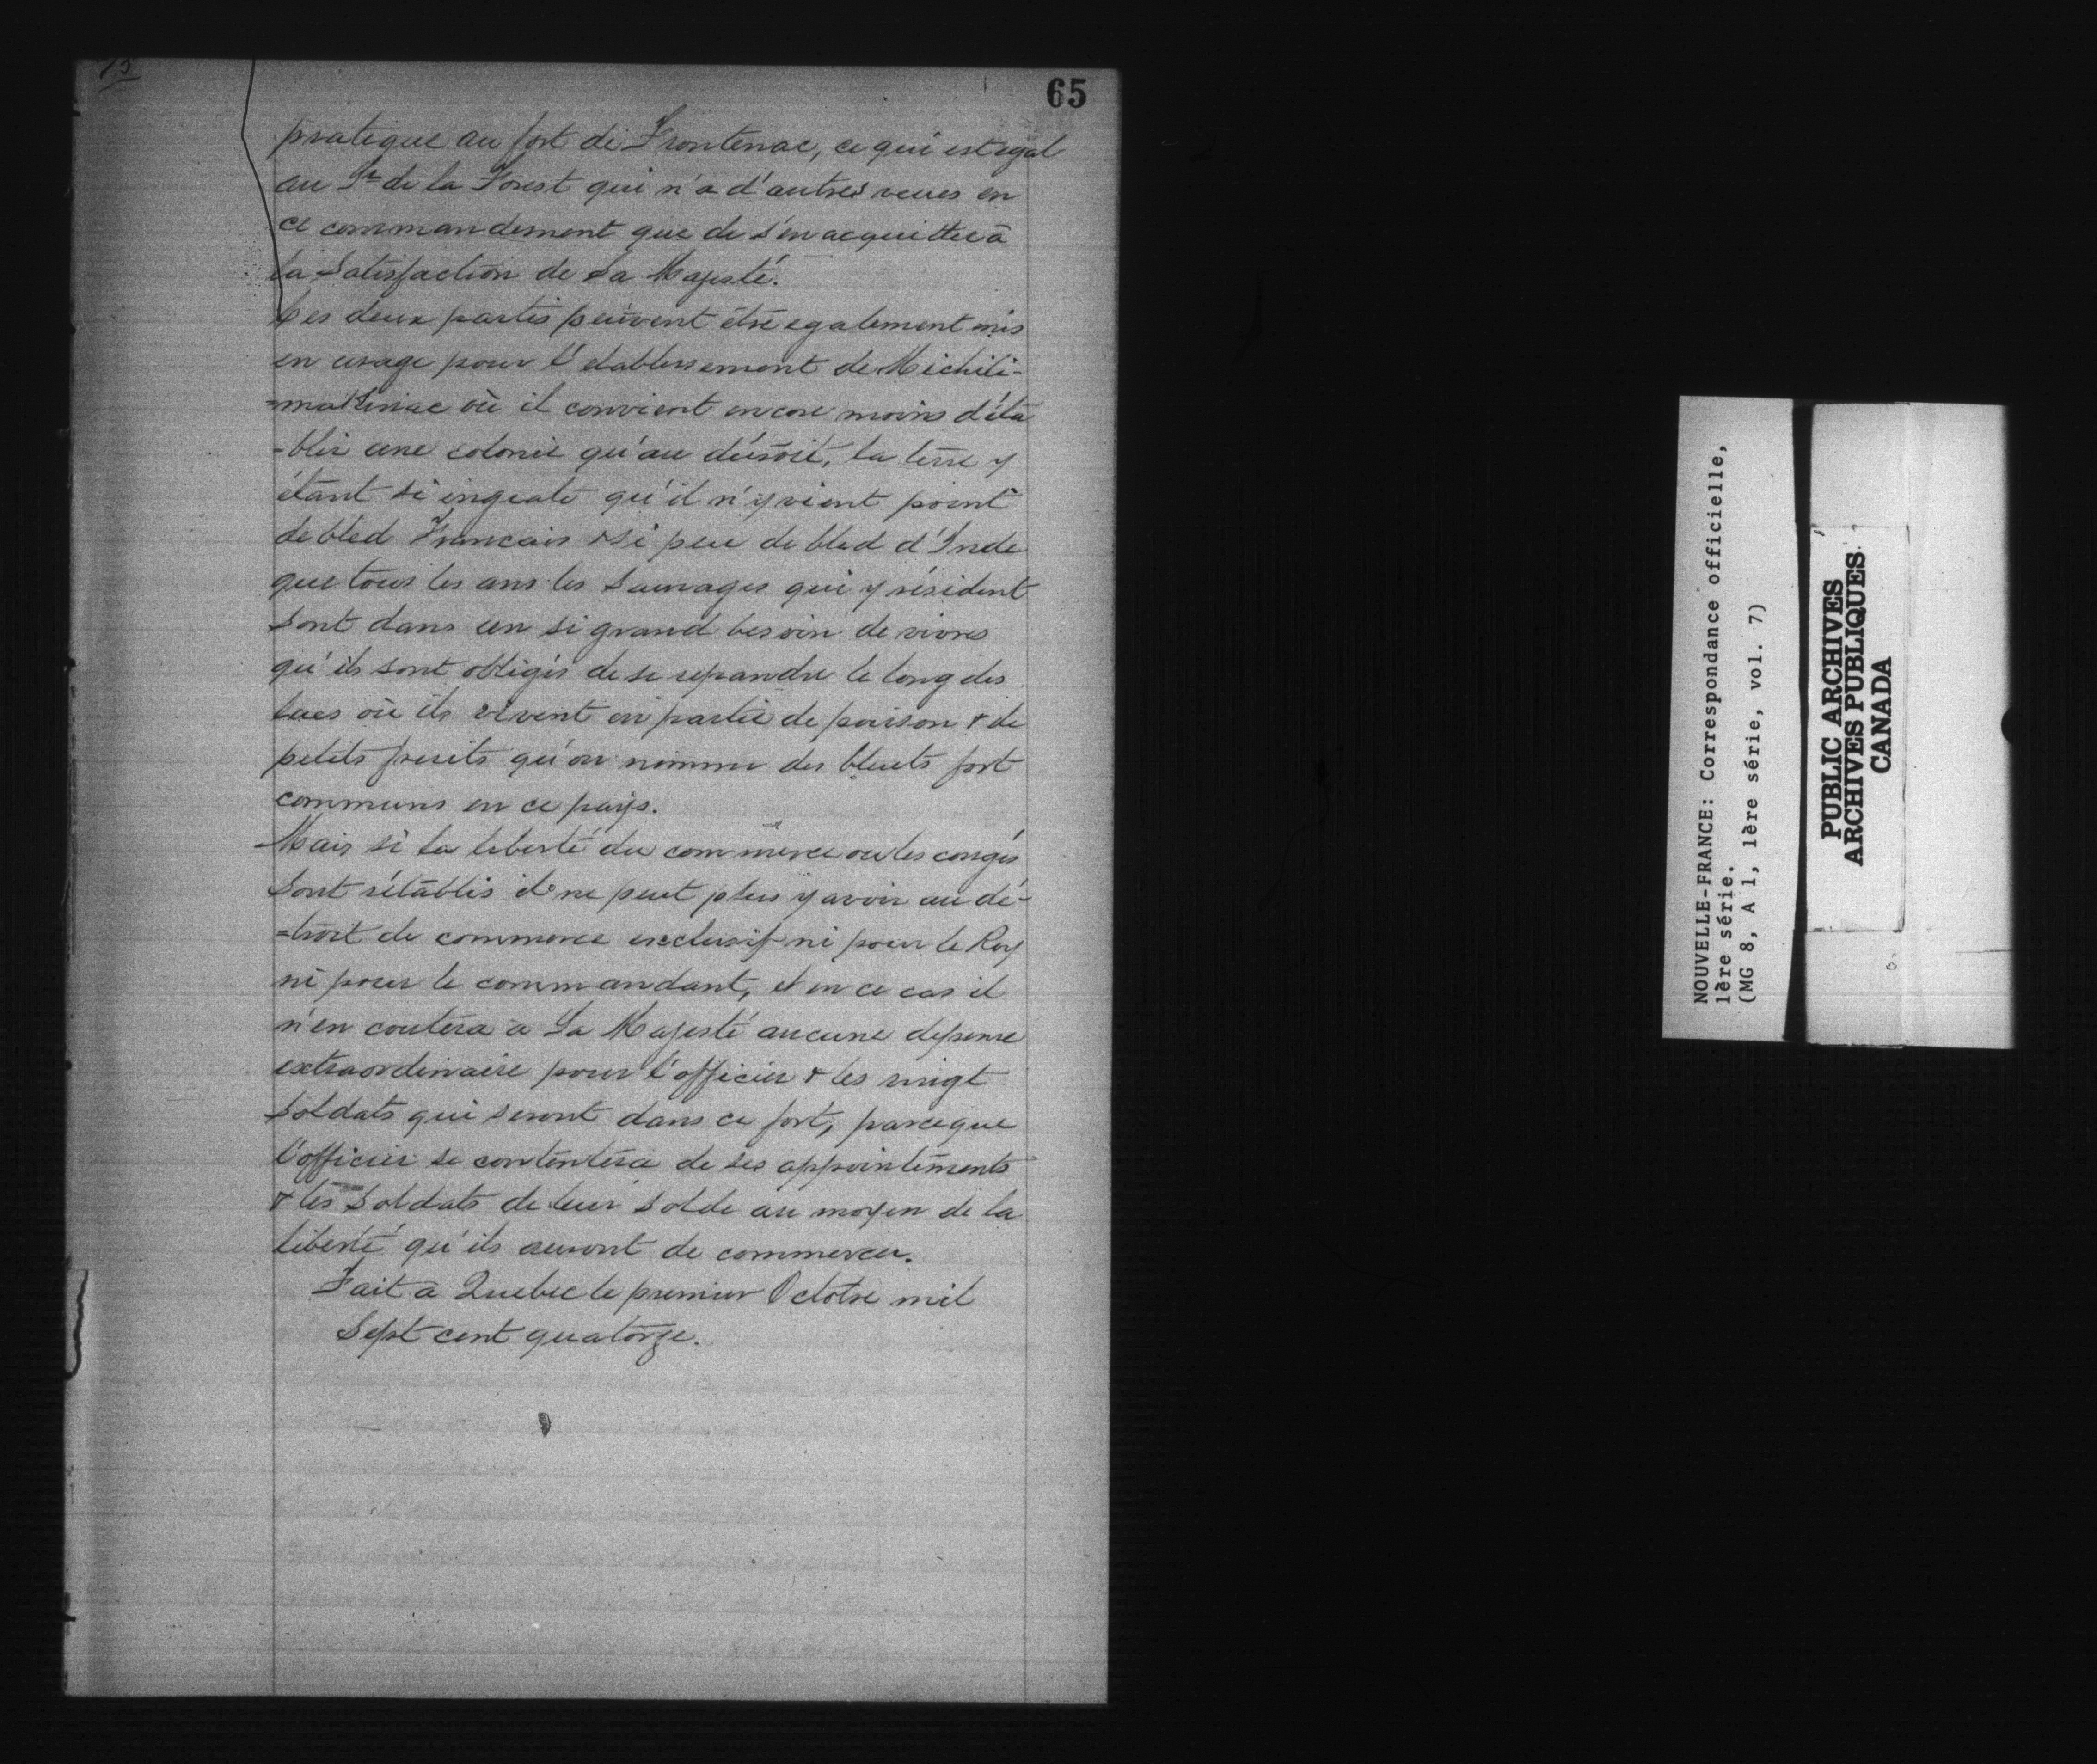 65
pratique au fort de Frontenac, ce qui est egal
au Sr de la Forest qui n'a d'autres veues en
ce commandement que de s'en acquitter à
la Satisfaction de Sa Majesté.
Ces deux partis peuvent étre egalement mis
en usage pour l'etablissement de Michili-
=makinac où il convient encore moins d'éta
-blir une colonie qu'au détroit, la terre y
étant si ingrate qu'il n'y vient point
de bled Francais & si peu de bled d'Inde
que tous les ans les Sauvages qui y résident
sont dans un si grand besoin de vivres
qu'ils sont obligés de se repandre le long des
lacs où ils vivent en partie de poisson & de
petits fruits qu'on nomme des bluets fort
communs en ce pays.
Mais si la liberté du commerce ou les congés
Sont rétablis il ne peut plus y avoir au dé-
=troit de commerce exclusif ni pour le Roy
ni pour le commandant, et en ce cas il
n'en coutera à Sa Majesté aucune depense
extraordinaire pour l'officier & les vingt
Soldats qui seront dans ce fort, parceque
l'officier se contentera de ses appointements
& les Soldats de leur solde au moyen de la
liberté qu'ils auront de commercer.
Fait à Quebec le premier Octobre mil
Sept cent quatorze.
NOUVELLE-FRANCE: Correspondance officielle,
1ère série.
(MG 8, A 1, 1ère série, vol. 7)
PUBLIC ARCHIVES
ARCHIVES PUBLIQUES
CANADA